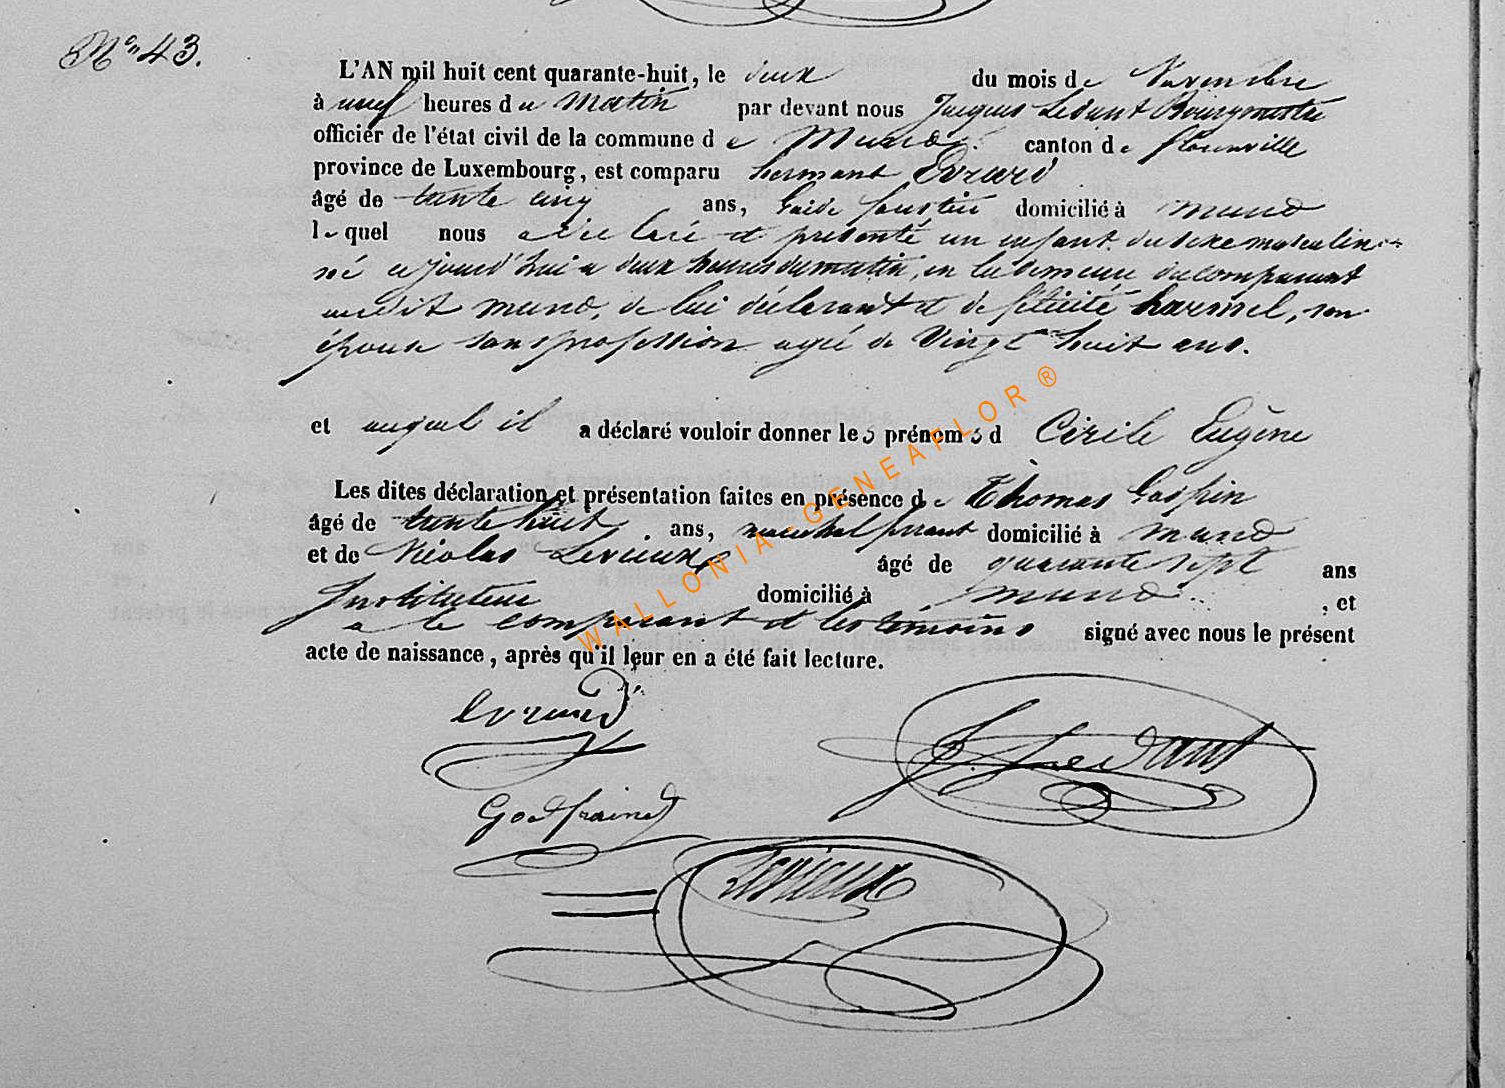 N° 43.
L'AN mil huit cent quarante-huit, le deux du mois de Novembre
à neuf heures du matin par devant nous Jacques Ledant Bourgmestre
officier de l'état civil de la commune de Muno canton de florenville
province de Luxembourg, est comparu hermant Evrard
âgé de trente cinq ans, domicilié à muno
lequel nous a déclaré et présenté un enfant du sexe masculin
né ce jourd'hui a deux heures du matin, en la demeure du comparant
audit muno, de lui déclarant et de félicité harmel, son
épouse sans profession agée de Vingt huit ans.
et auquel il a déclaré vouloir donner les prénoms d Cirile Eugène
Les dites déclaration et présentation faites en présence de Thomas
âgé de trente huit ans, marechal ferrant domicilié à muno
et de Nicolas Lerieux âgé de quarante sept ans
Instituteur domicilié à muno, et
a le comparant et les témoins signé avec nous le présent
acte de naissance, après qu'il leur en a été fait lecture.
Evrard
J. Ledant
Godfraind
Lerieux
WALLONIA-GENEAFLOR ®